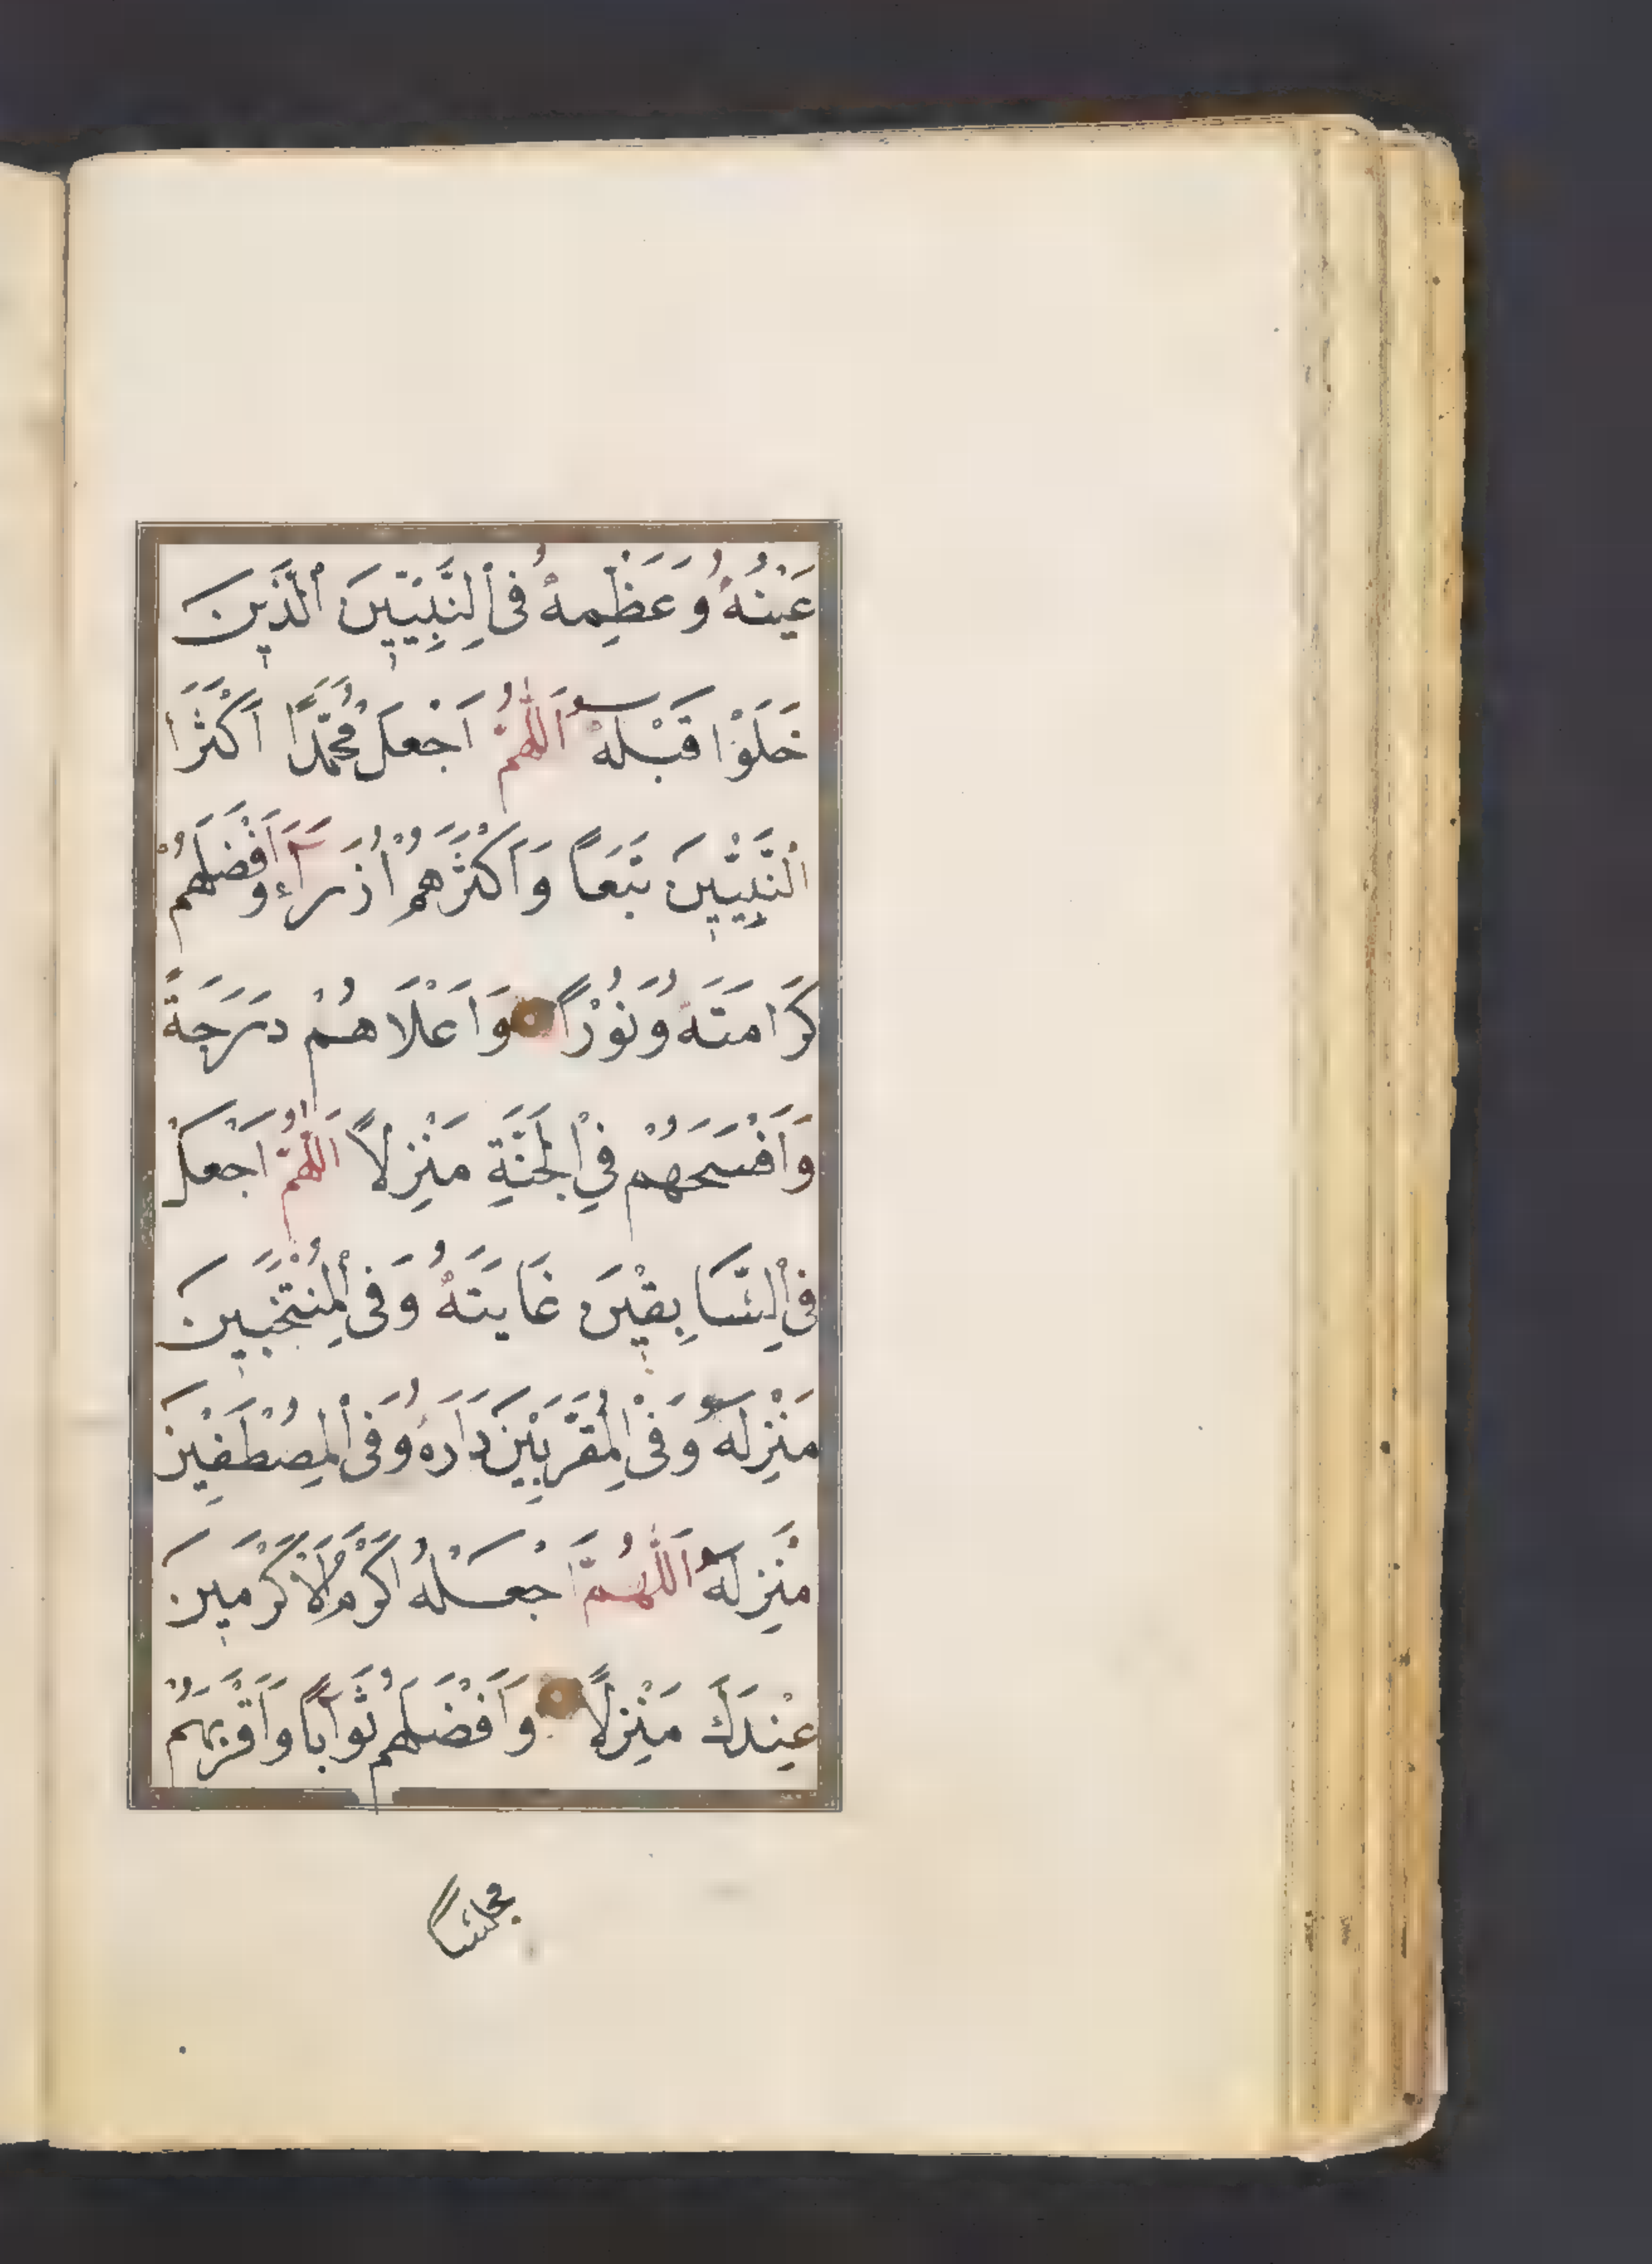 عَيْنُهُ وَعَظِّمهُ فِى النَّبِيّٖينَ الَّذٖينَ
خَلَوْا قَبْلَهُ اَللّٰهُمَّ اَجْعَلْ مُحَمَّدًا اَكْثَرَا
لنَّبِيّٖينَ تَبَعًا وَاَكْثَرَهُمْ اُزَرَآءَ وَاَفْضَلَهُمْ
كَرَّامَتَهُ وَنُوْرًا وَاَعْلَاهُمْ دَرَجَةً
وَاَفْسَحَهُمْ فِي الْجَنَّةِ مَنْزِلًا اَللّٰهُمَّ اَجْعَلْ
فِى السَّابِقٖيْنَ غَايَتَهُ وَفِى الْمُنْتَخَبٖينَ
مَنْزِلَهُ وَفِى الْمُقَرَّبِيْنَ دَارَهُ وَفِى الْمُصْطَفِيْنَ
مَنْزِلَهُ اَللّٰهُمَّ اجْعَلْهُ اَكْرَمَ الْاَكْرَمٖينَ
عِنْدَكَ مَنْزِلًا وَاَفْضَلَهُمْ ثَوَابًا وَاَقْرَبَهُمْ
مجلسًا